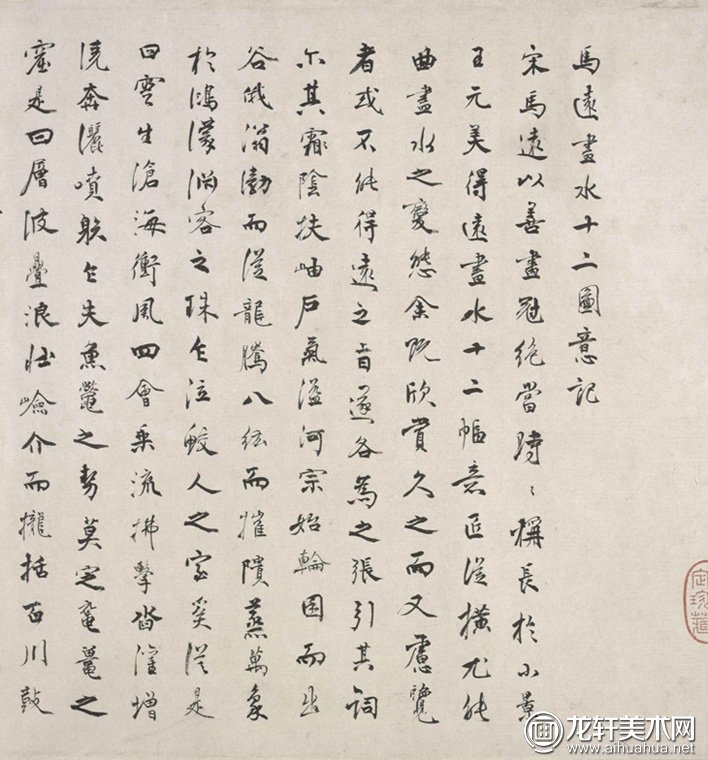 馬遠畫水十二圖意記
宋馬遠以善畫冠絕當時〻稱長於小景
王元美得遠畫水十二幅意匠從橫尤能
曲盡水之變態余既欣賞久之而又慮覽
者或不能得遠之旨遂各為之張引其詞
尒其霏陰扶岫戶氣溢河宗始輪囷而出
谷俄滃渤而從龍騰八紘而摧隤蒸萬象
於鴻濛洞客之珠乍泣鮫人之室奚從是
曰雲生滄海衝風四會乘流拂擊沓濳增
澆奔灑噴
乍失魚鼈之勢莫定黿鼉之
窟是曰層波疊浪壯嶮介而攏括百川敲
定珍藏
龙轩美术网
www.aihuahua.net